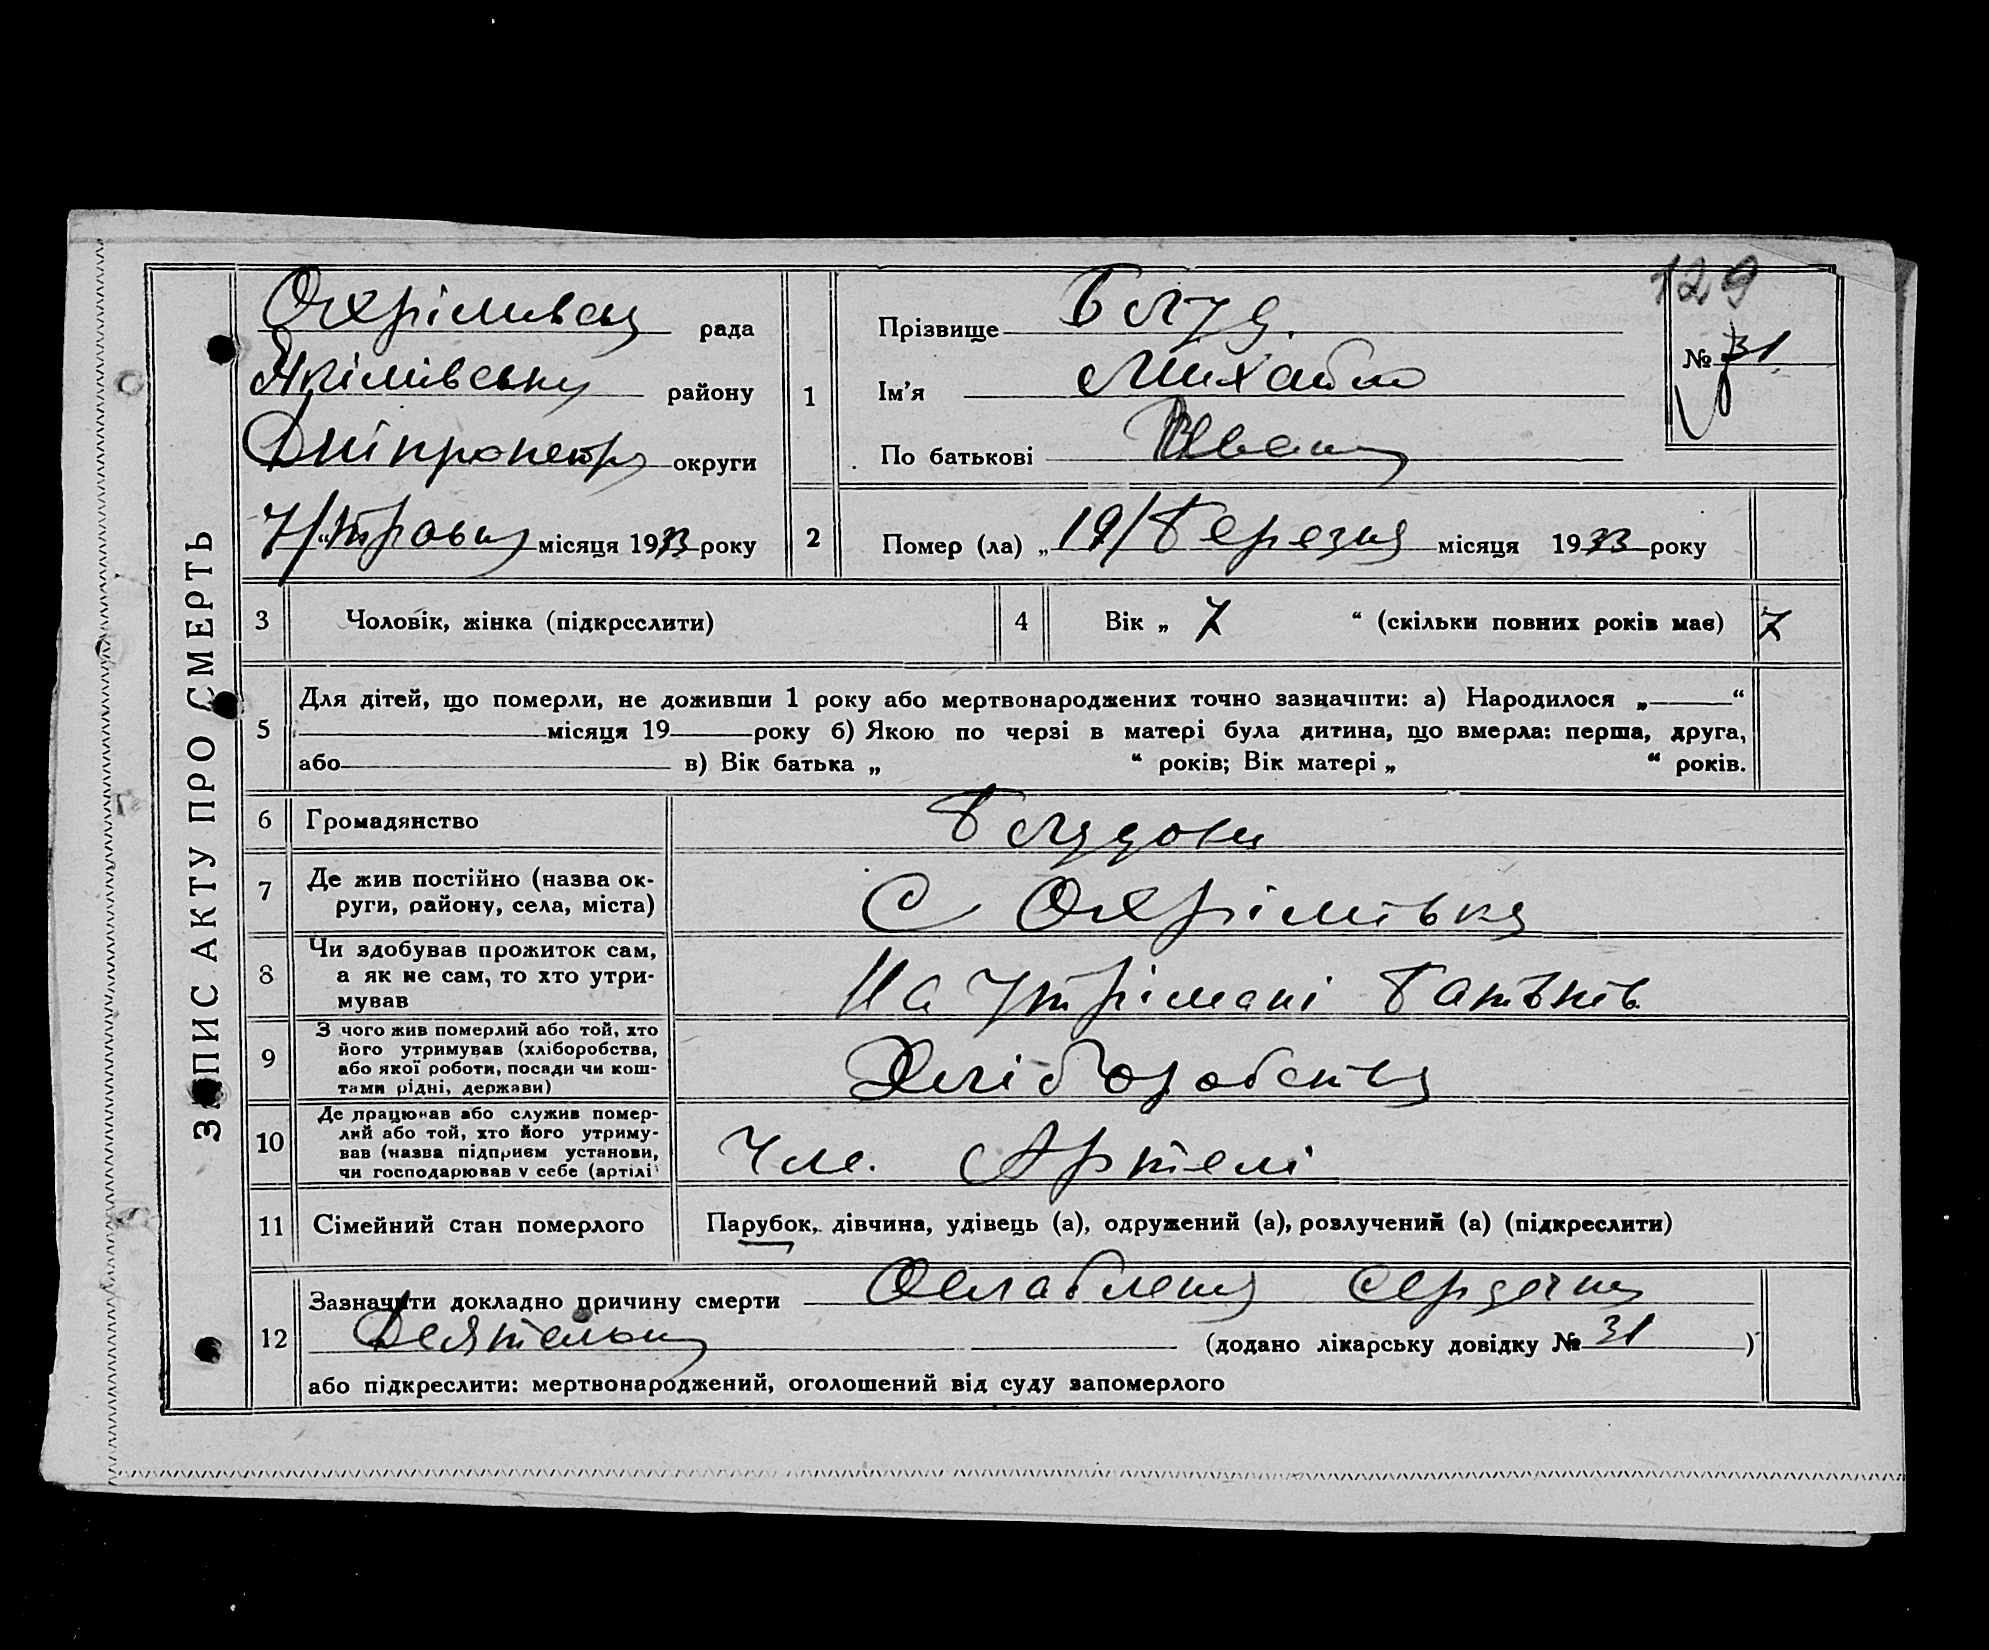 129
ЗАПИС АКТУ ПРО СМЕРТЬ
Охрімивськ рада
Якімівську району
Дніпропетр округи
7/"травня місяця 1933 року
1
Прізвище Блуд.
Ім'я Михайло
По батькові Иван
№ 31
2
Помер (ла) „19/Березня місяця 1933 року
3 Чоловік, жінка (підкреслити)
4 Вік „ 7 “ (скільки повних років має) 7
5 Для дітей, що померли, не доживши 1 року або мертвонароджених точно зазначити: а) Народилося „ “
місяця 19 року б) Якою по черзі в матері була дитина, що вмерла: перша, друга,
або в) Вік батька „ “ років; Вік матері „ “ років.
6 Громадянство
7 Де жив постійно (назва ок-
руги, району, села, міста)
С Охрімівка
8 Чи здобував прожиток сам,
а як не сам, то хто утри-
мував
На утрімані батьків
9 З чого жив померлий або той, хто
його утримував (хліборобства,
або якої роботи, посади чи кош-
тами рідні, держави)
Хліборобства
10 Де працював або служив помер-
лий або той, хто його утриму-
вав (назва підприєм установи,
чи господарював у себе (артілі
Чле. Артелі
11 Сімейний стан померлого
Парубок, дівчина, удівець (а), одружений (а), розлучений (а) (підкреслити)
12 Зазначити докладно причину смерти Ослабления сердечн
Деятельн (додано лікарську довідку № 31 )
або підкреслити: мертвонароджений, оголошений від суду запомерлого